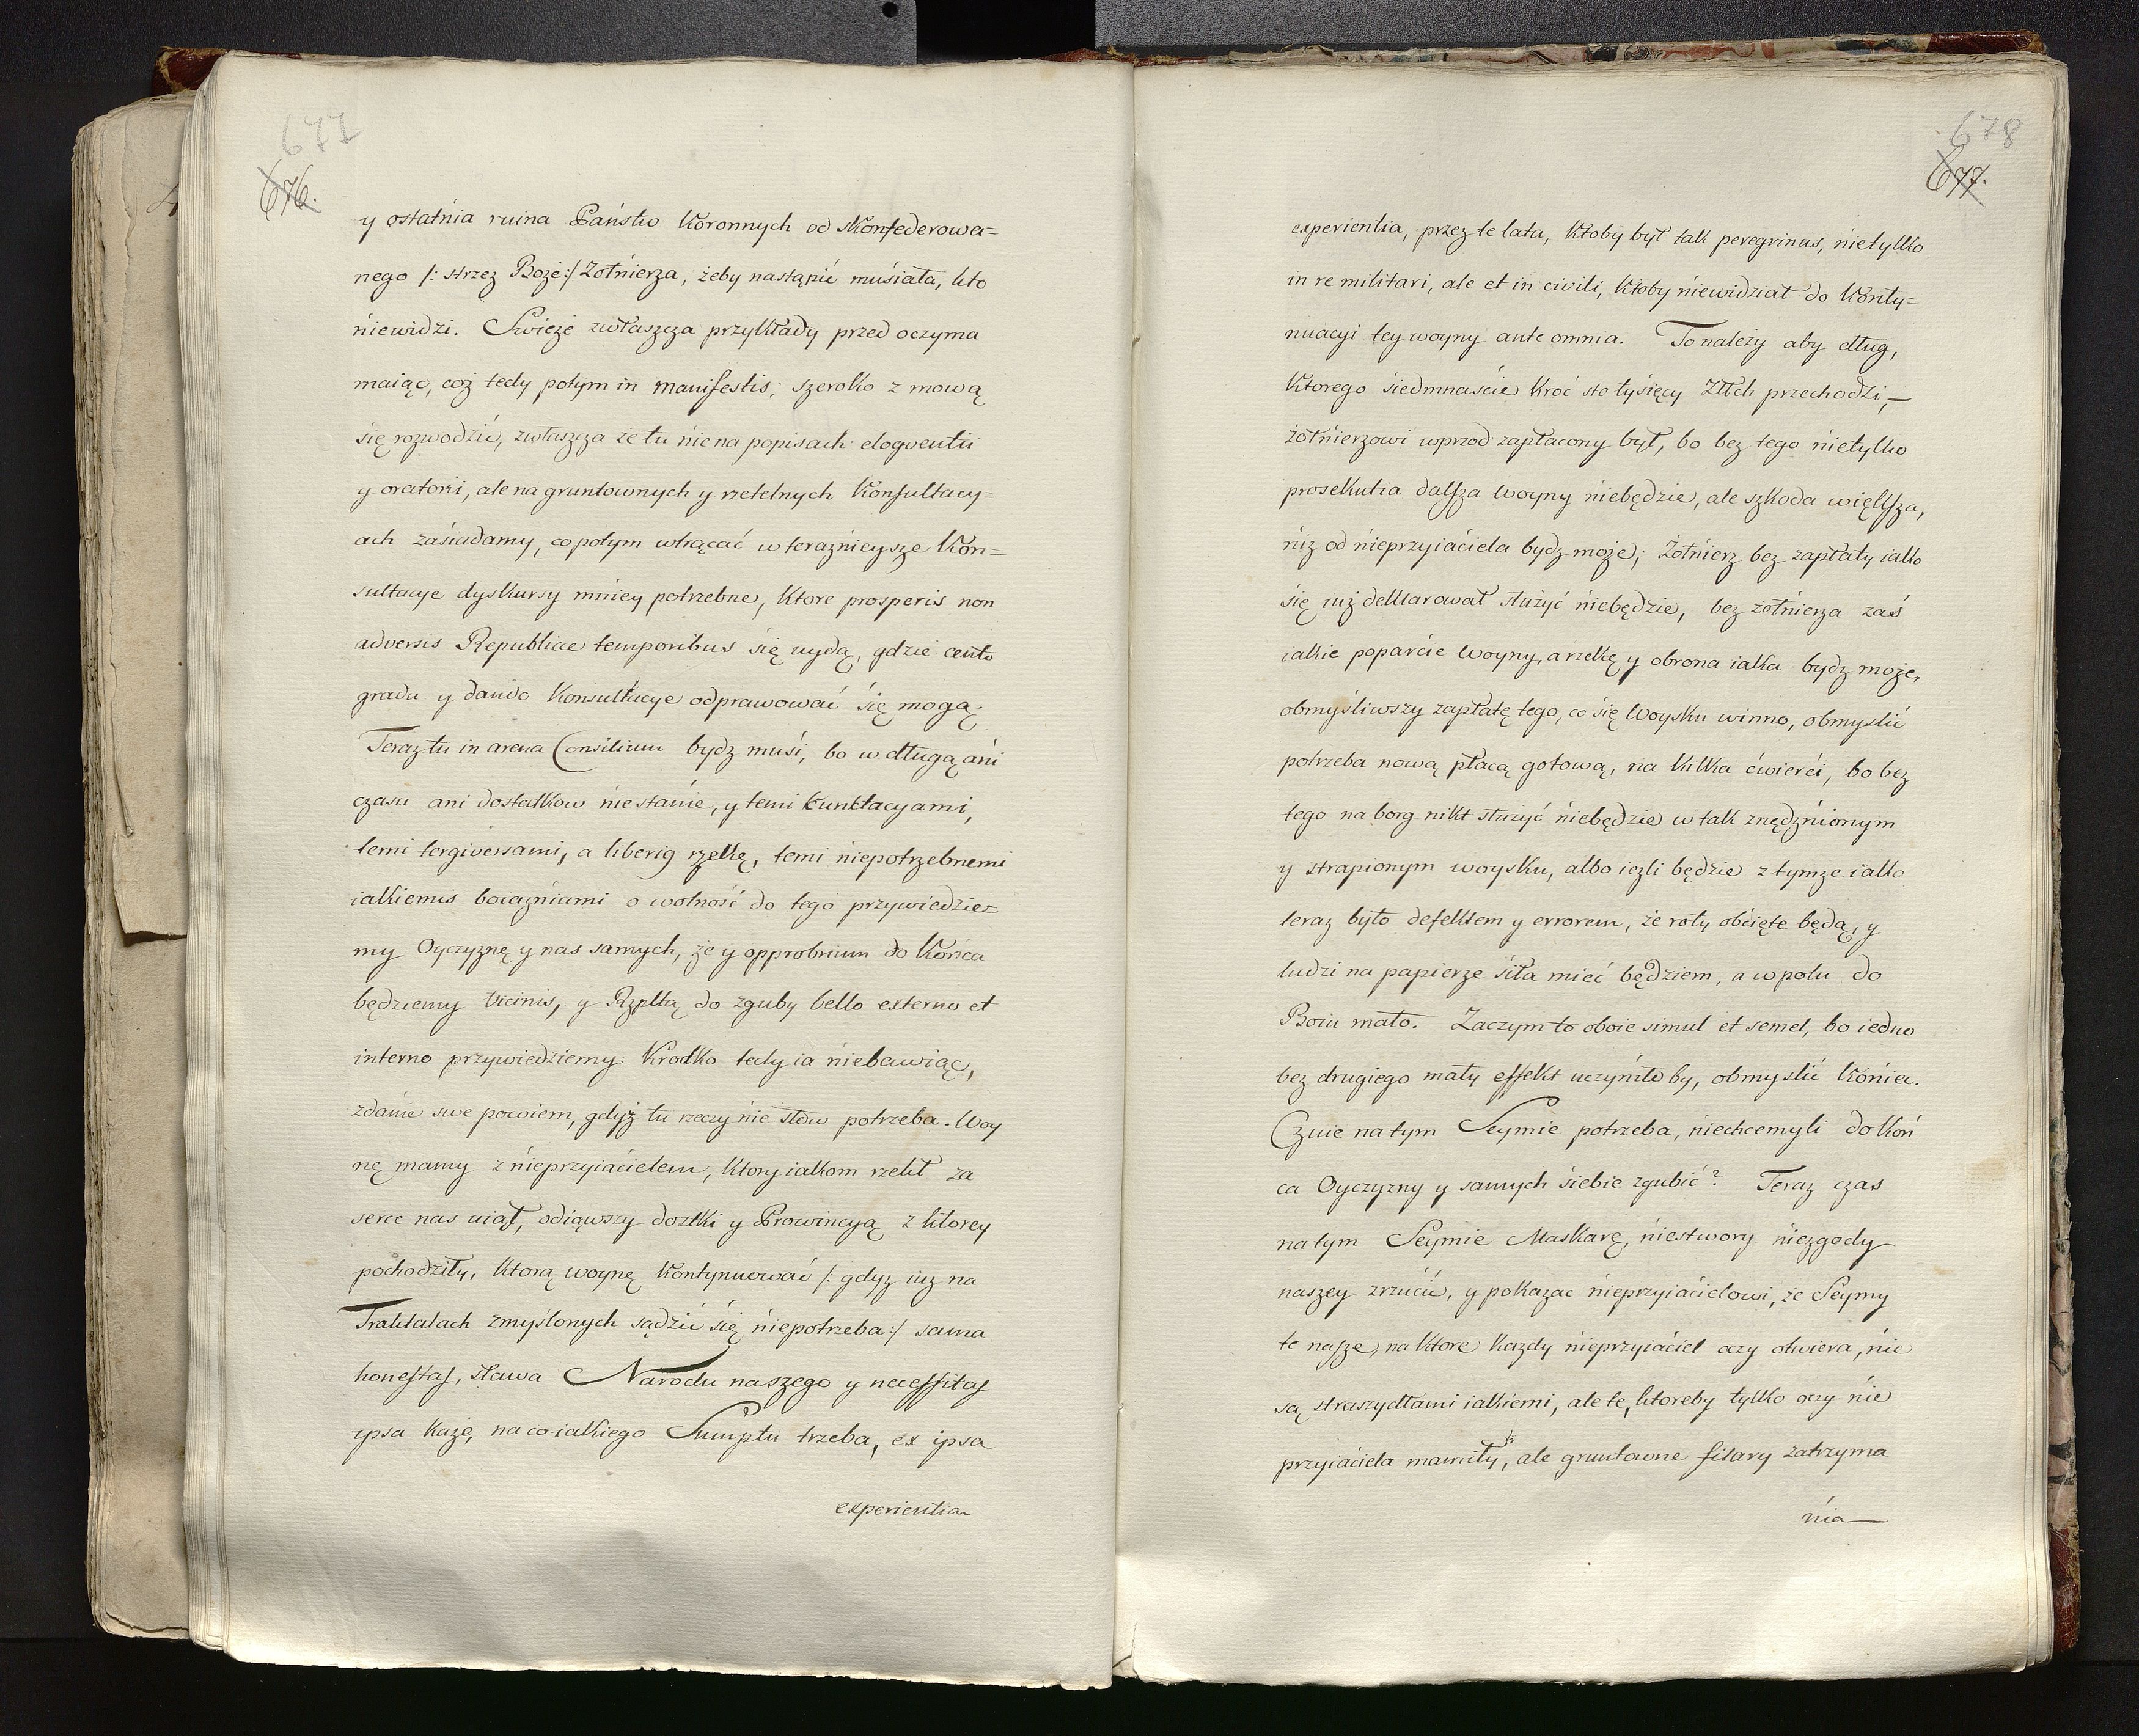 677
676.
y ostatńia ruina Państw Koronnych od skonfederowa=
nego /: strzez Boże:/ Żołnierza, żeby nastąpić muśiała, kto
niewidzi. Swieże zwłaszcza przykłady przed oczyma
maiąc, coż tedy potym in manifestis; szeroko z mową
się rozwodzić, zwłaszcza że tu nie na popisach eloqventii
y oratorii, ale na gruntownych y rzetelnych Konsultacy=
ach zaśiadamy, co potym wtrącać w teraznieysze Kon=
sultacye dyskursy mniey potrzebne, ktore prosperis non
adversis Republicae temporibus się uydą, gdzie cento
gradu y dando Konsultacye odprawować się mogą;
Teraz tu in arena Consilium bydz muśi, bo w długą ańi
czasu ani dostatkow niestanie, y temi kunktacyami,
temi tergiversami, a liberig rzekę, temi niepotrzebnemi
iakiemis boiazniami o wolność do tego przywiedzie=
my Oyczyznę y nas samych, że y opprobrium do Końca
będziemy vicinis, y Rzpltą do zguby bello externo et
interno przywiedziemy. Krotko tedy ia niebawiąc,
zdanie swe powiem, gdyż tu rzeczy nie słow potrzeba. Woy
nę mamy z nieprzyiaćielem, ktory iakom rzekł za
serce nas uiął, odiąwszy dostki y Prowincyą z ktorey
pochodziły, ktorą woynę kontynuować /: gdyz iuz na
Traktatach zmyślonych sądzić się niepotrzeba:/ sama
honestas, sława Narodu naszego y necessitas
ipsa każe, na co iakiego Sumptu trzeba, ex ipsa
experientia
678
677.
experientia, przez te lata, ktoby był tak peregrinus, nietylko
in re militari, ale et in civili, ktoby niewidział do Konty=
nuacyi tey woyny ante omnia. To należy aby dług,
ktorego śiedmnaście kroć sto tyśięcy Złłch przechodzi,—
żołnierzowi wprzod zapłacony był, bo bez tego nietylko
prosekutia dalsza woyny niebędzie, ale szkoda większa,
niz od nieprzyiaćiela bydz może; Żołnierz bez zapłaty iako
się iuż deklarował służyć niebędzie, bez żołnierza zaś
iakie poparcie woyny, a rzekę y obrona iaka bydz może,
obmyśliwszy zapłatę tego, co się Woysku winno, obmyslić
potrzeba nową płacą gotową, na kilka ćwierći, bo bez
tego na borg nikt służyć niebędzie w tak znędznionym
y strapionym woysku, albo iezli będzie z tymze iako
teraz było defektem y errorem, że roty obćięte będą, y
ludzi na papierze śiła mieć będziem, a w polu do
Boiu mało. Zaczym to oboie simul et semel, bo iedno
bez drugiego mały effekt uczyniłoby, obmyslić koniec.
Cznie na tym Seymie potrzeba, niechcemyli do Koń
ca Oyczyzny y samych śiebie zgubić? Teraz czas
na tym Seymie Maskarę, niestwory niezgody
naszey zrzućić, y pokazac nieprzyiaćielowi, że Seymy
te nasze, na ktore kazdy nieprzyiaćiel oczy otwiera, nie
są straszydłami iakiemi, ale te, ktoreby tylko oczy nie
przyiaćiela mamiły, ale gruntowne filary zatrzyma
nia—